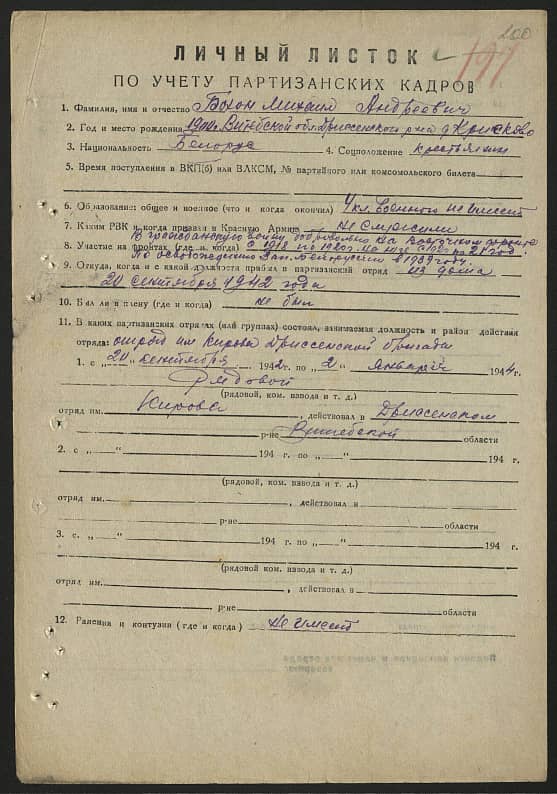 200
197
ЛИЧНЫЙ ЛИСТОК
ПО УЧЕТУ ПАРТИЗАНСКИХ КАДРОВ
1. Фамилия, имя и отчество Бохон Михаил Андреевич
2. Год и место рождения Витебской обл. Дриссенского р-на д.
3. Национальность Белорус 4. Соцположение крестьянин
5. Время поступления в ВКП(б) или ВЛКСМ, № партийного или комсомольского билета
6. Образование: общее и военное (что и когда окончил) 4 кл. Военного не имеет
7. Каким РВК и когда призван в Красную Армию
В гражданскую войну добровольно на
8. Участие на фронтах (где и когда) с 1918 по 1920 г.
По освобождению Зап. Белоруссии в 1939 году.
9. Откуда, когда и с какой должности прибыл в партизанский отряд из дома
20 сентября 1942 года
10. Был ли в плену (где и когда) не был
11. В каких партизанских отрядах (или группах) состоял, занимаемая должность и район действия
отряда: отряд им Кирова Дриссенской бригады
1. с „20“ сентября 1942 г. по „2“ января 1944 г.
Рядовой
(рядовой, ком. взвода и т. д.)
отряд им. Кирова, действовал в Дриссенском
р-не Витебской области
2. с „ “ 194 г. по „ “ 194 г.
(рядовой, ком. взвода и т. д.)
отряд им. , действовал в
р-не области
3. с „ “ 194 г. по „ “ 194 г.
(рядовой, ком. взвода и т. д.)
отряд им. , действовал в
р-не области
12. Ранения и контузии (где и когда) не имеет